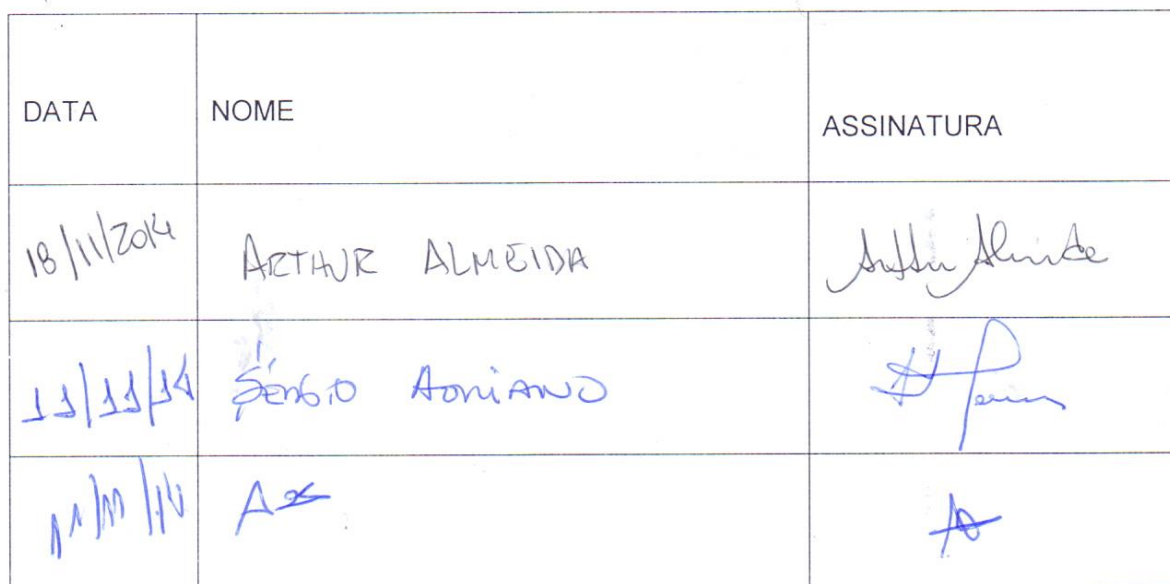 DATA NOME ASSINATURA
18/11/2014 ARTHUR ALMEIDA Arthur Almeida
11/11/14 SÉRGIO ADRIANO
11/11/14